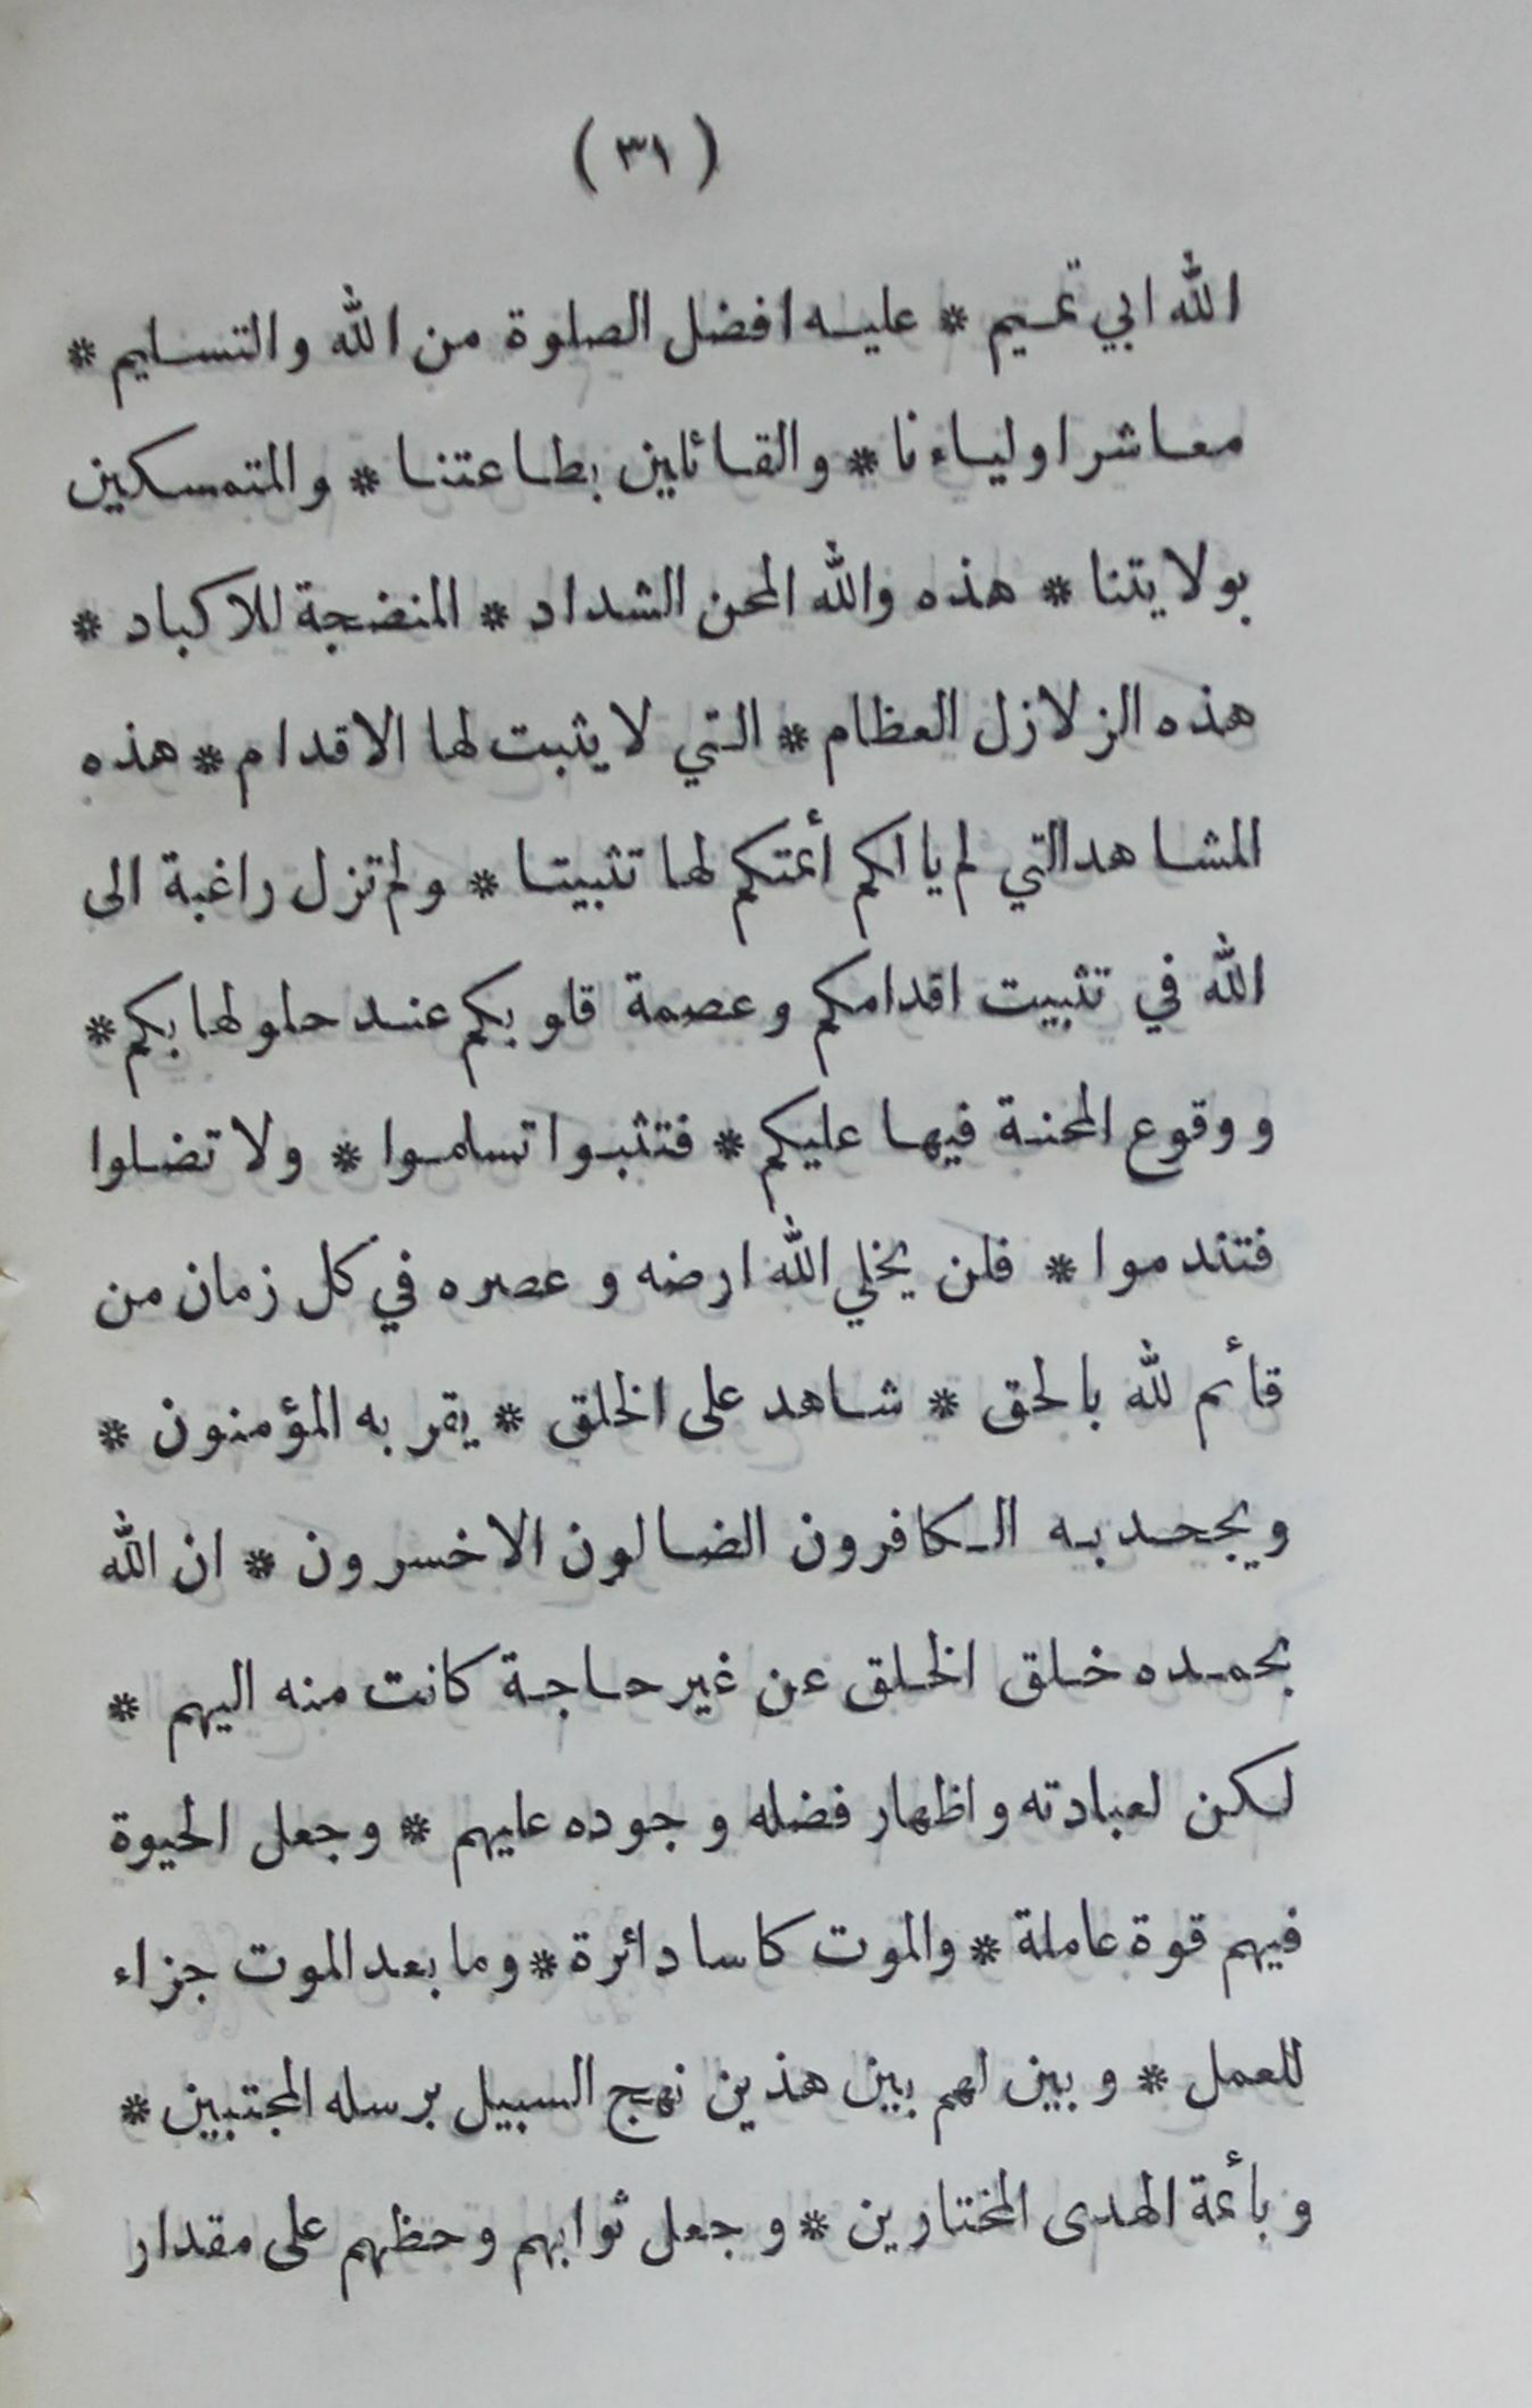 ( ٣١ )
الله ابي تميم * عليه افضل الصلوة من الله والتسليم *
معاشر اولياءنا * والقائلين بطاعتنا * والمتمسكين
بولايتنا * هذه والله المحن الشداد * المنضجة للاكباد *
هذه الزلازل العظام * التي لا يثبت لها الاقدام * هذه
المشاهد التي لم يالكم أئمتكم لها تثبيتا * ولم تزل راغبة الى
الله في تثبيت اقدامكم وعصمة قلوبكم عند حلولها بكم *
ووقوع المحنة فيها عليكم * فتثبوا تسلموا * ولا تضلوا
فتندموا * فلن يخلي الله ارضه وعصره في كل زمان من
قأئم لله بالحق * شاهد على الخلق * يقر به المؤمنون *
ويجحد به الكافرون الضالون الاخسرون * ان الله
بحمده خلق الخلق عن غير حاجة كانت منه اليهم *
لكن لعبادته واظهار فضله وجوده عليهم * وجعل الحيوة
فيهم قوة عاملة * والموت كاسا دائرة * وما بعد الموت جزاء
للعمل * وبين لهم بين هذين نهج السبيل برسله المجتبين *
وبأئمة الهدى المختارين * وجعل ثوابهم وحظهم على مقدار